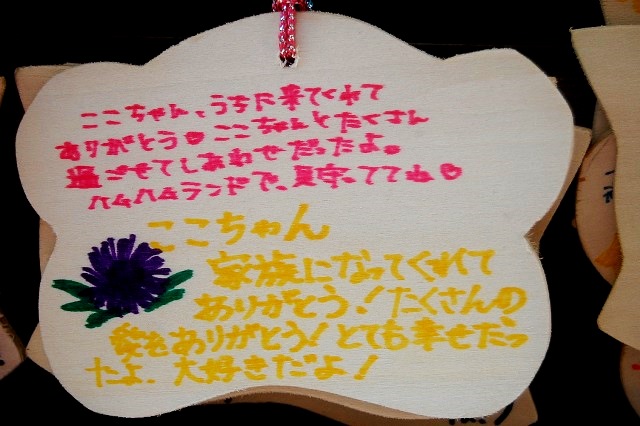 ここちゃん、うちに来てくれて
ありがとう♥ ここちゃんとたくさん
過ごせてしあわせだったよ。
ハムハムランドで、見守っててね♡
ここちゃん
家族になってくれて
ありがとう！たくさんの
愛をありがとう！とても幸せだっ
たよ、大好きだよ！